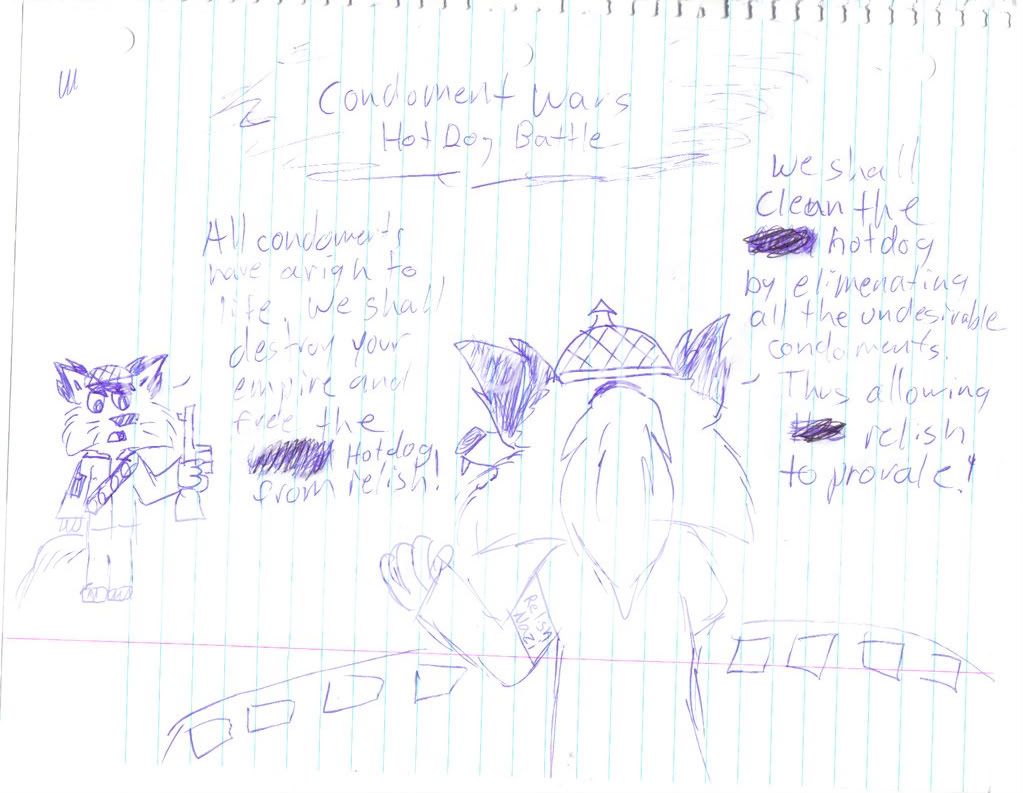 Condoment Wars
Hot Dog Battle
All condoments
have a righ to
life. We shall
destroy your
empire and
free the
Hotdog
from relish!
We shall
Clean the
hotdog
by elimenating
all the undesirable
condoments.
Thus allowing
relish
to provale!
Relsh
Nazi